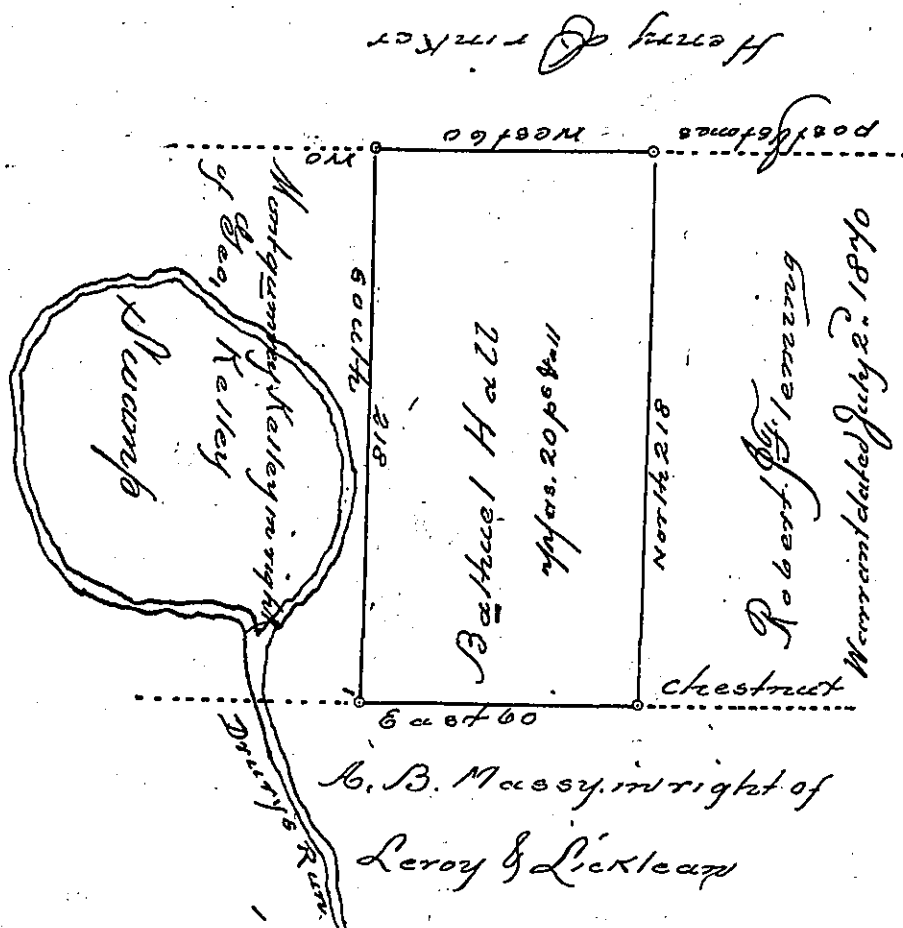 Henry Drinker
post & stones
West 60
WO
Montgumrey Kelley in right
of Geo,
Kelley
Swamp
South 218
Bathuel Hall
77 as. 20 ps & all
North 218
Robert Fleming
Warrant dated July 2n. 1870
Chestnut
East 60
Drury's Run.
A. B. Massy. in right of
Leroy & Licklean